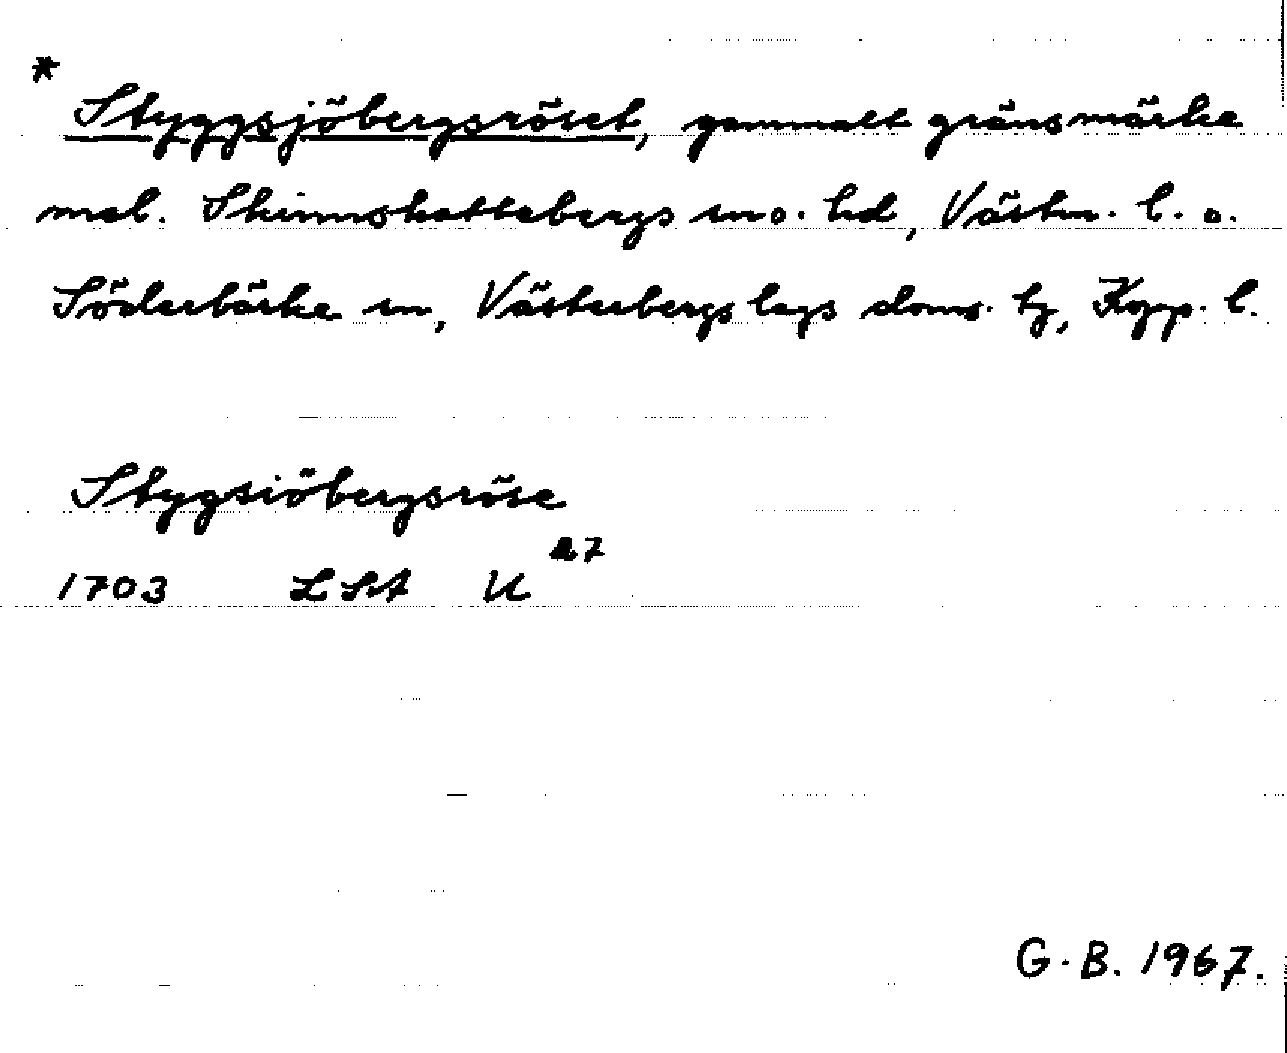 * Styggsjöbergsröset, gammalt gränsmärke
mel. Skinnskattebergs sn o. hd, Västm. l. o.
Söderbärke sn, Västerbergslags doms. tg, Kopp. l.
Stygsiöbergsröse
27
1703 LSA U
G.B. 1967.